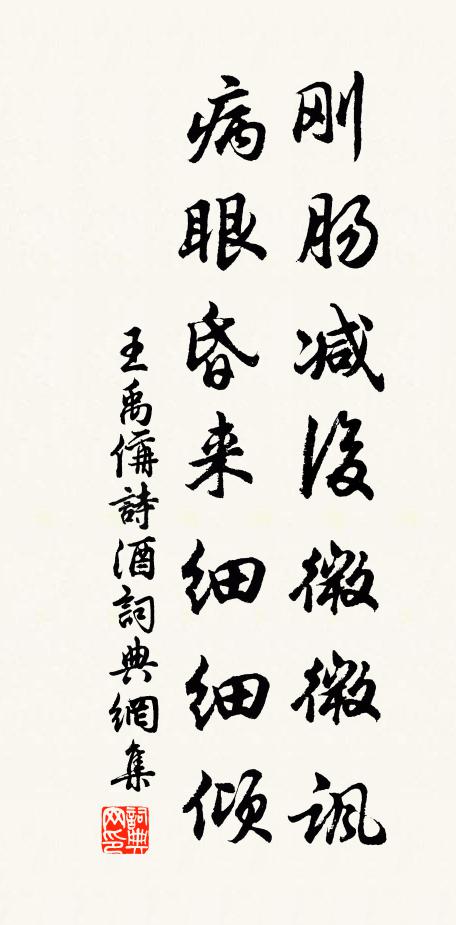 刚肠减后微微讽
病眼昏来细细倾
王禹偁詩酒詞典網集
詞典网印